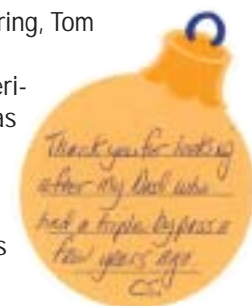 ring, Tom
eri-
as
s
Thank you for looking
after my Dad who
had a triple bypass a
few years ago
CS.